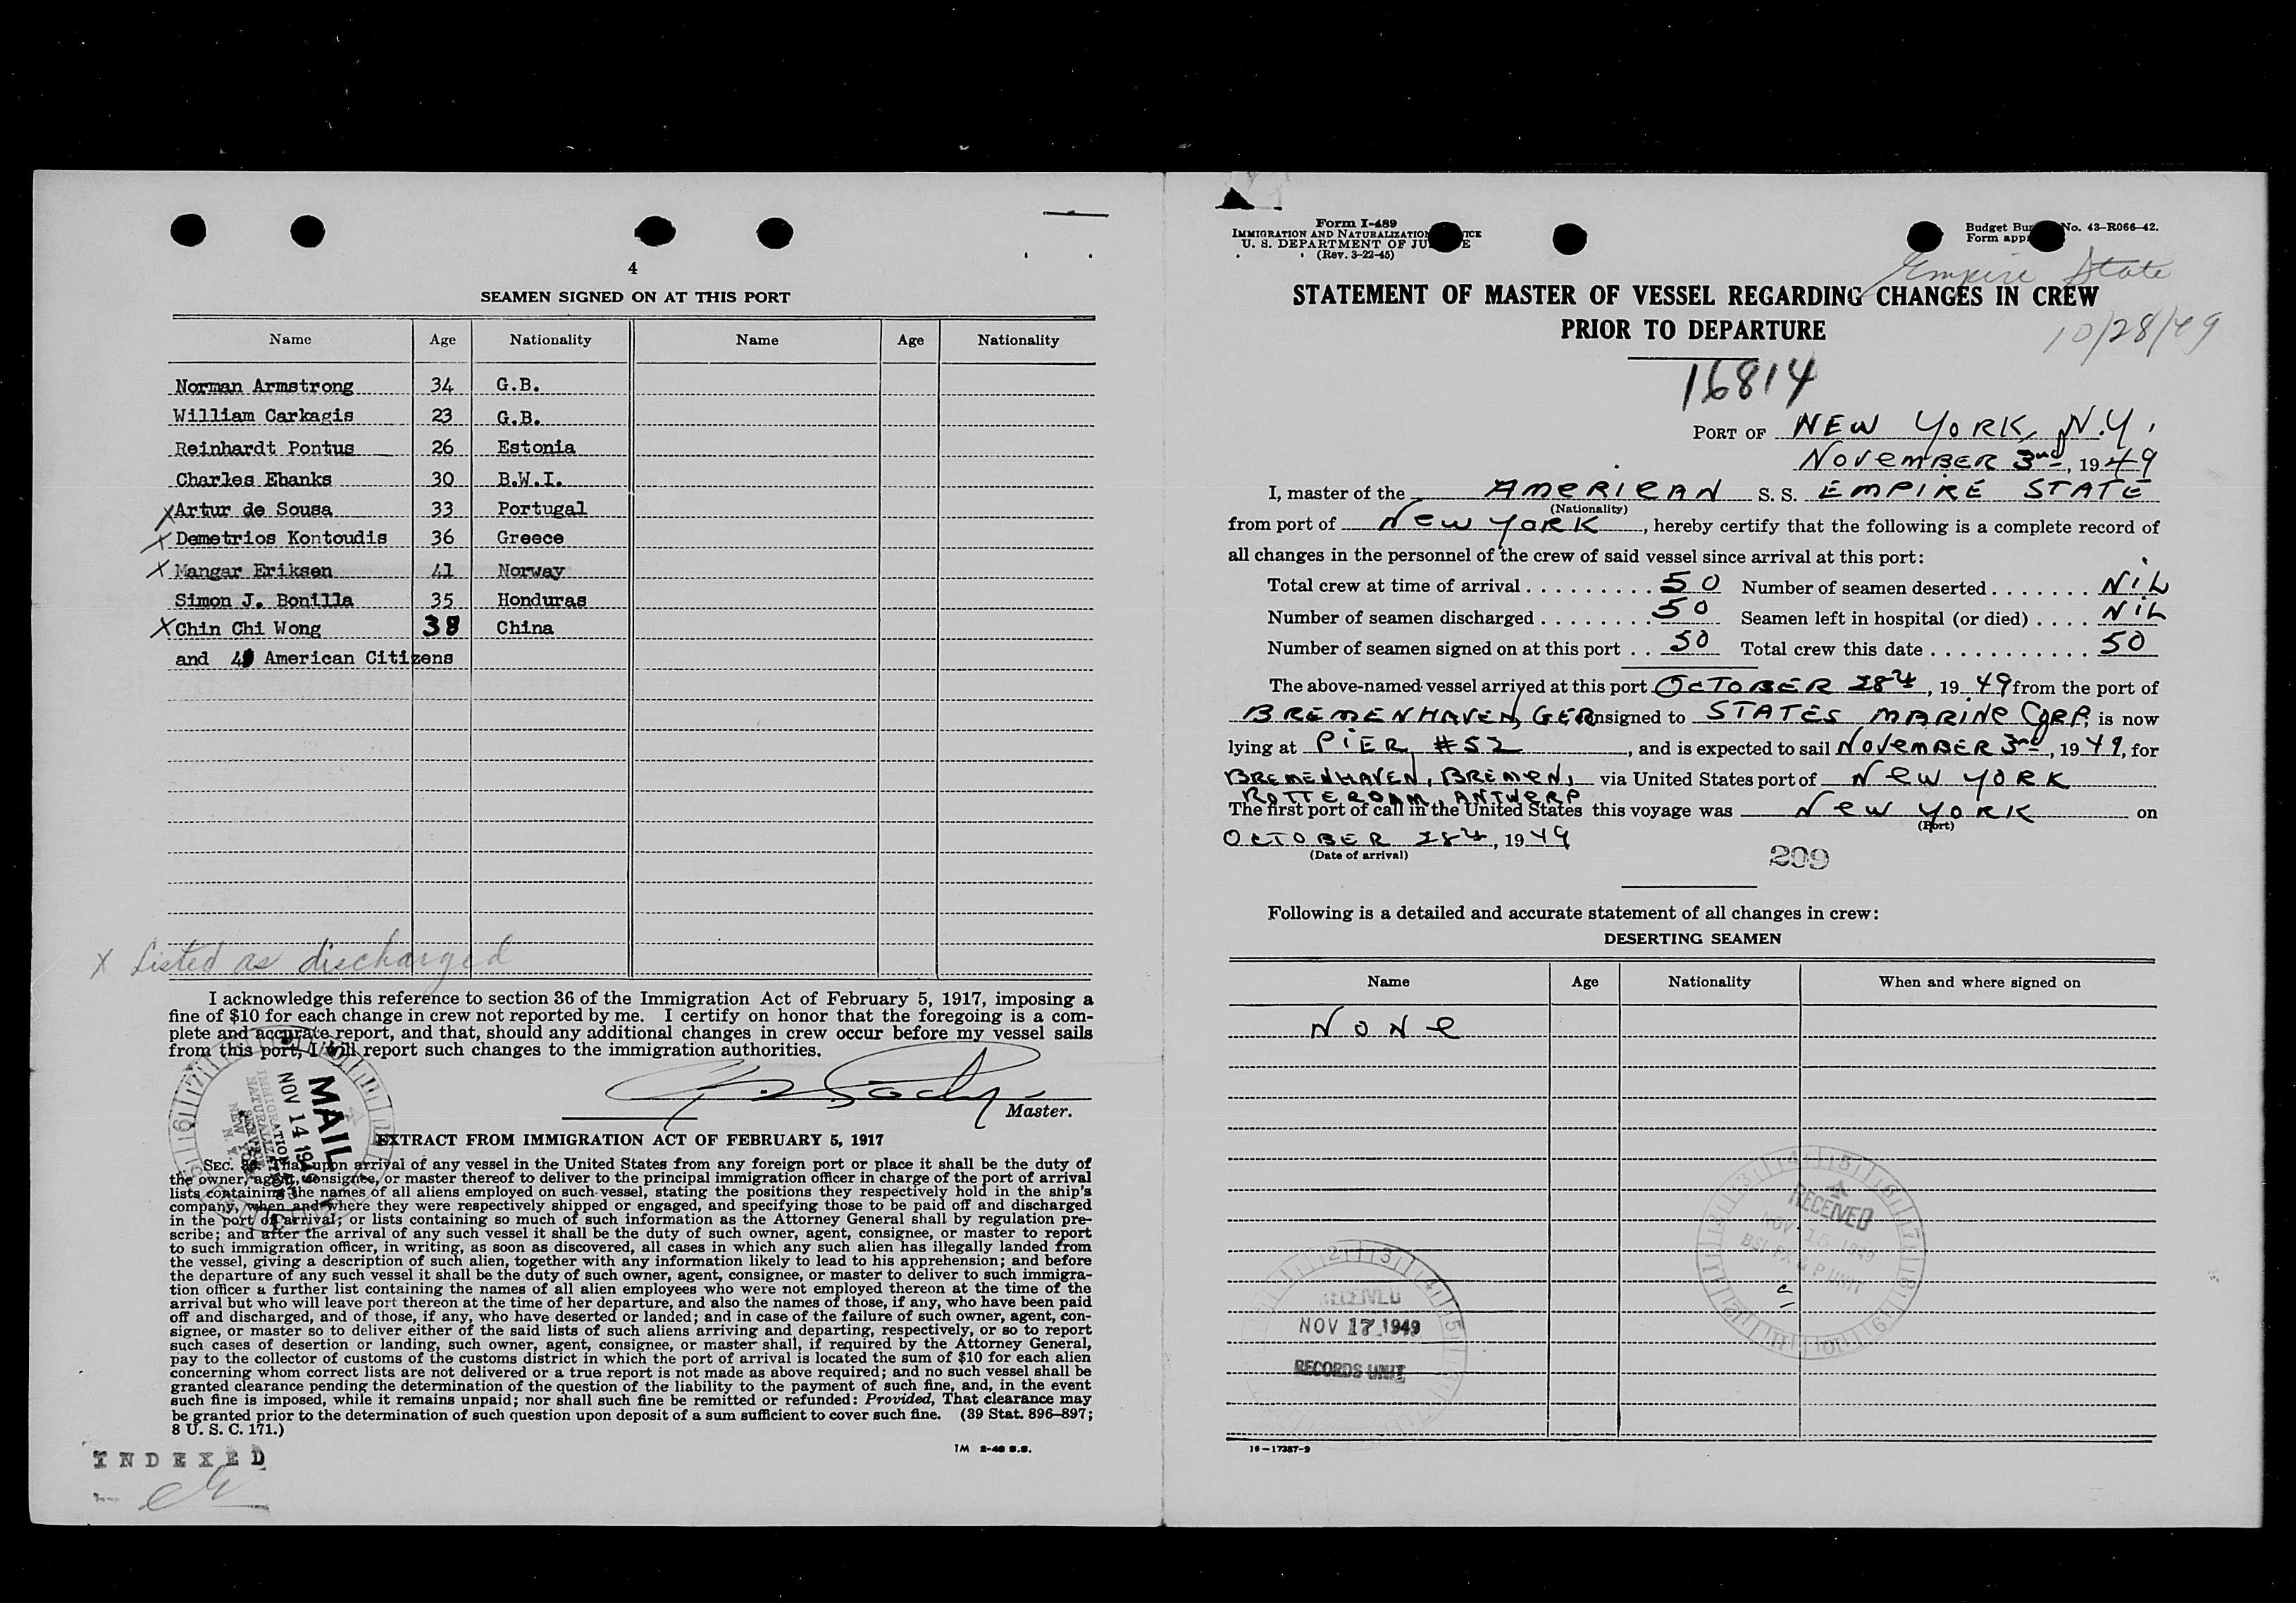 4
SEAMEN SIGNED ON AT THIS PORT
Name Age Nationality Name Age Nationality
Norman Armstrong 34 G.B.
William Carkagis 23 G.B.
Reinhardt Pontus 26 Estonia
Charles Ebanks 30 B.W.I.
X Artur de Sousa 33 Portugal
X Demetrios Kontoudis 36 Greece
X Mangar Eriksen 41 Norway
Simon J. Bonilla 35 Honduras
X Chin Chi Wong 38 China
and American Citizens
X Listed as discharged
I acknowledge this reference to section 36 of the Immigration Act of February 5, 1917, imposing a
fine of $10 for each change in crew not reported by me. I certify on honor that the foregoing is a com-
plete and accurate report, and that, should any additional changes in crew occur before my vessel sails
from this port, I will report such changes to the immigration authorities.
Master.
MAIL
NOV 14 1949
EXTRACT FROM IMMIGRATION ACT OF FEBRUARY 5, 1917
SEC. 36. That upon arrival of any vessel in the United States from any foreign port or place it shall be the duty of
the owner, agent, consignee, or master thereof to deliver to the principal immigration officer in charge of the port of arrival
lists containing the names of all aliens employed on such vessel, stating the positions they respectively hold in the ship's
company, when and where they were respectively shipped or engaged, and specifying those to be paid off and discharged
in the port of arrival; or lists containing so much of such information as the Attorney General shall by regulation pre-
scribe; and after the arrival of any such vessel it shall be the duty of such owner, agent, consignee, or master to report
to such immigration officer, in writing, as soon as discovered, all cases in which any such alien has illegally landed from
the vessel, giving a description of such alien, together with any information likely to lead to his apprehension; and before
the departure of any such vessel it shall be the duty of such owner, agent, consignee, or master to deliver to such immigra-
tion officer a further list containing the names of all alien employees who were not employed thereon at the time of the
arrival but who will leave port thereon at the time of her departure, and also the names of those, if any, who have been paid
off and discharged, and of those, if any, who have deserted or landed; and in case of the failure of such owner, agent, con-
signee, or master so to deliver either of the said lists of such aliens arriving and departing, respectively, or so to report
such cases of desertion or landing, such owner, agent, consignee, or master shall, if required by the Attorney General,
pay to the collector of customs of the customs district in which the port of arrival is located the sum of $10 for each alien
concerning whom correct lists are not delivered or a true report is not made as above required; and no such vessel shall be
granted clearance pending the determination of the question of the liability to the payment of such fine, and, in the event
such fine is imposed, while it remains unpaid; nor shall such fine be remitted or refunded: Provided, That clearance may
be granted prior to the determination of such question upon deposit of a sum sufficient to cover such fine. (39 Stat. 896–897;
8 U. S. C. 171.)
1M 2-48 S.S.
INDEXED
Form I-489
IMMIGRATION AND NATURALIZATION SERVICE
U. S. DEPARTMENT OF JUSTICE
(Rev. 3-22-45)
Budget Bureau No. 43-R066-42.
Form app
Empire State
STATEMENT OF MASTER OF VESSEL REGARDING CHANGES IN CREW
PRIOR TO DEPARTURE
10/28/49
16814
PORT OF NEW YORK, N.Y.
NOVEMBER 3rd, 1949
I, master of the AMERICAN S. S. EMPIRE STATE
(Nationality)
from port of NEW YORK, hereby certify that the following is a complete record of
all changes in the personnel of the crew of said vessel since arrival at this port:
Total crew at time of arrival . . . . . . . . . 50 Number of seamen deserted . . . . . . . NIL
Number of seamen discharged . . . . . . . . 50 Seamen left in hospital (or died) . . . . NIL
Number of seamen signed on at this port . . 50 Total crew this date . . . . . . . . . . . . 50
The above-named vessel arrived at this port OCTOBER 28th, 1949 from the port of
BREMENHAVEN, GER consigned to STATES MARINE CORP, is now
lying at PIER #52, and is expected to sail NOVEMBER 3rd, 1949, for
BREMENHAVEN, BREMEN, via United States port of NEW YORK
ROTTERDAM, ANTWERP
The first port of call in the United States this voyage was NEW YORK on
(Port)
OCTOBER 28th, 1949
(Date of arrival)
209
Following is a detailed and accurate statement of all changes in crew:
DESERTING SEAMEN
Name Age Nationality When and where signed on
NONE
RECEIVED
NOV 15 1949
RECEIVED
NOV 17 1949
RECORDS UNIT
16—17387-2